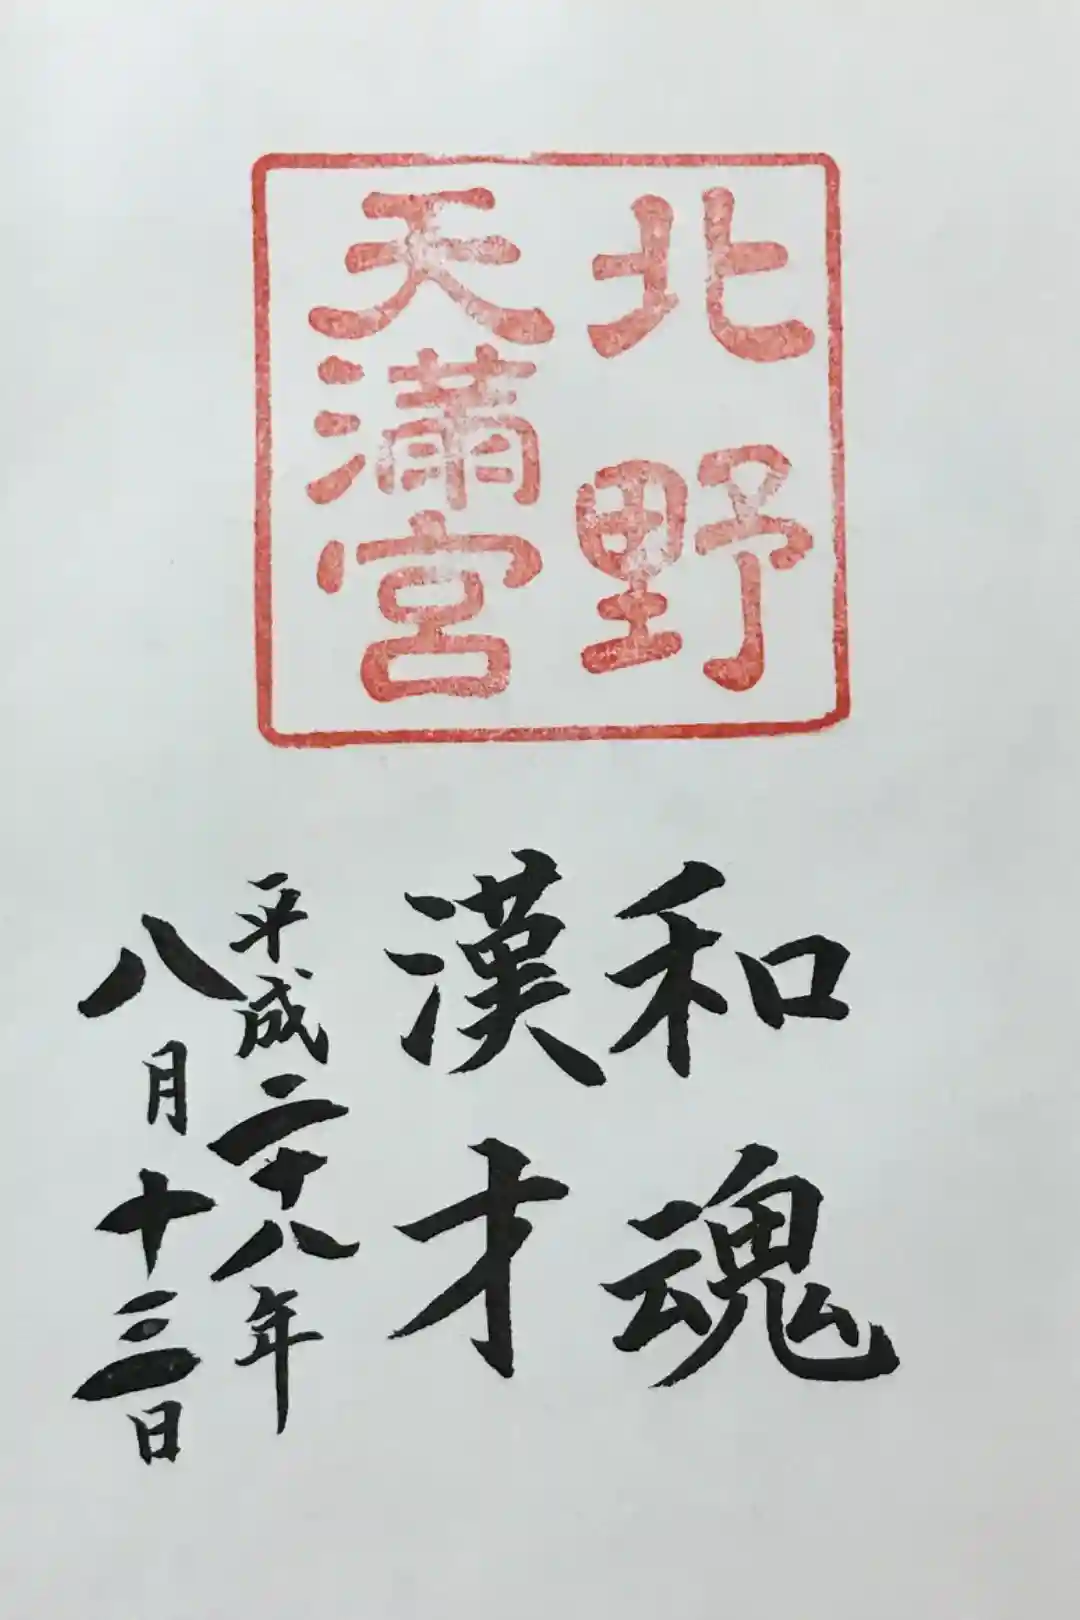 北野
天満宮
和魂
漢才
平成二十八年
八月十三日